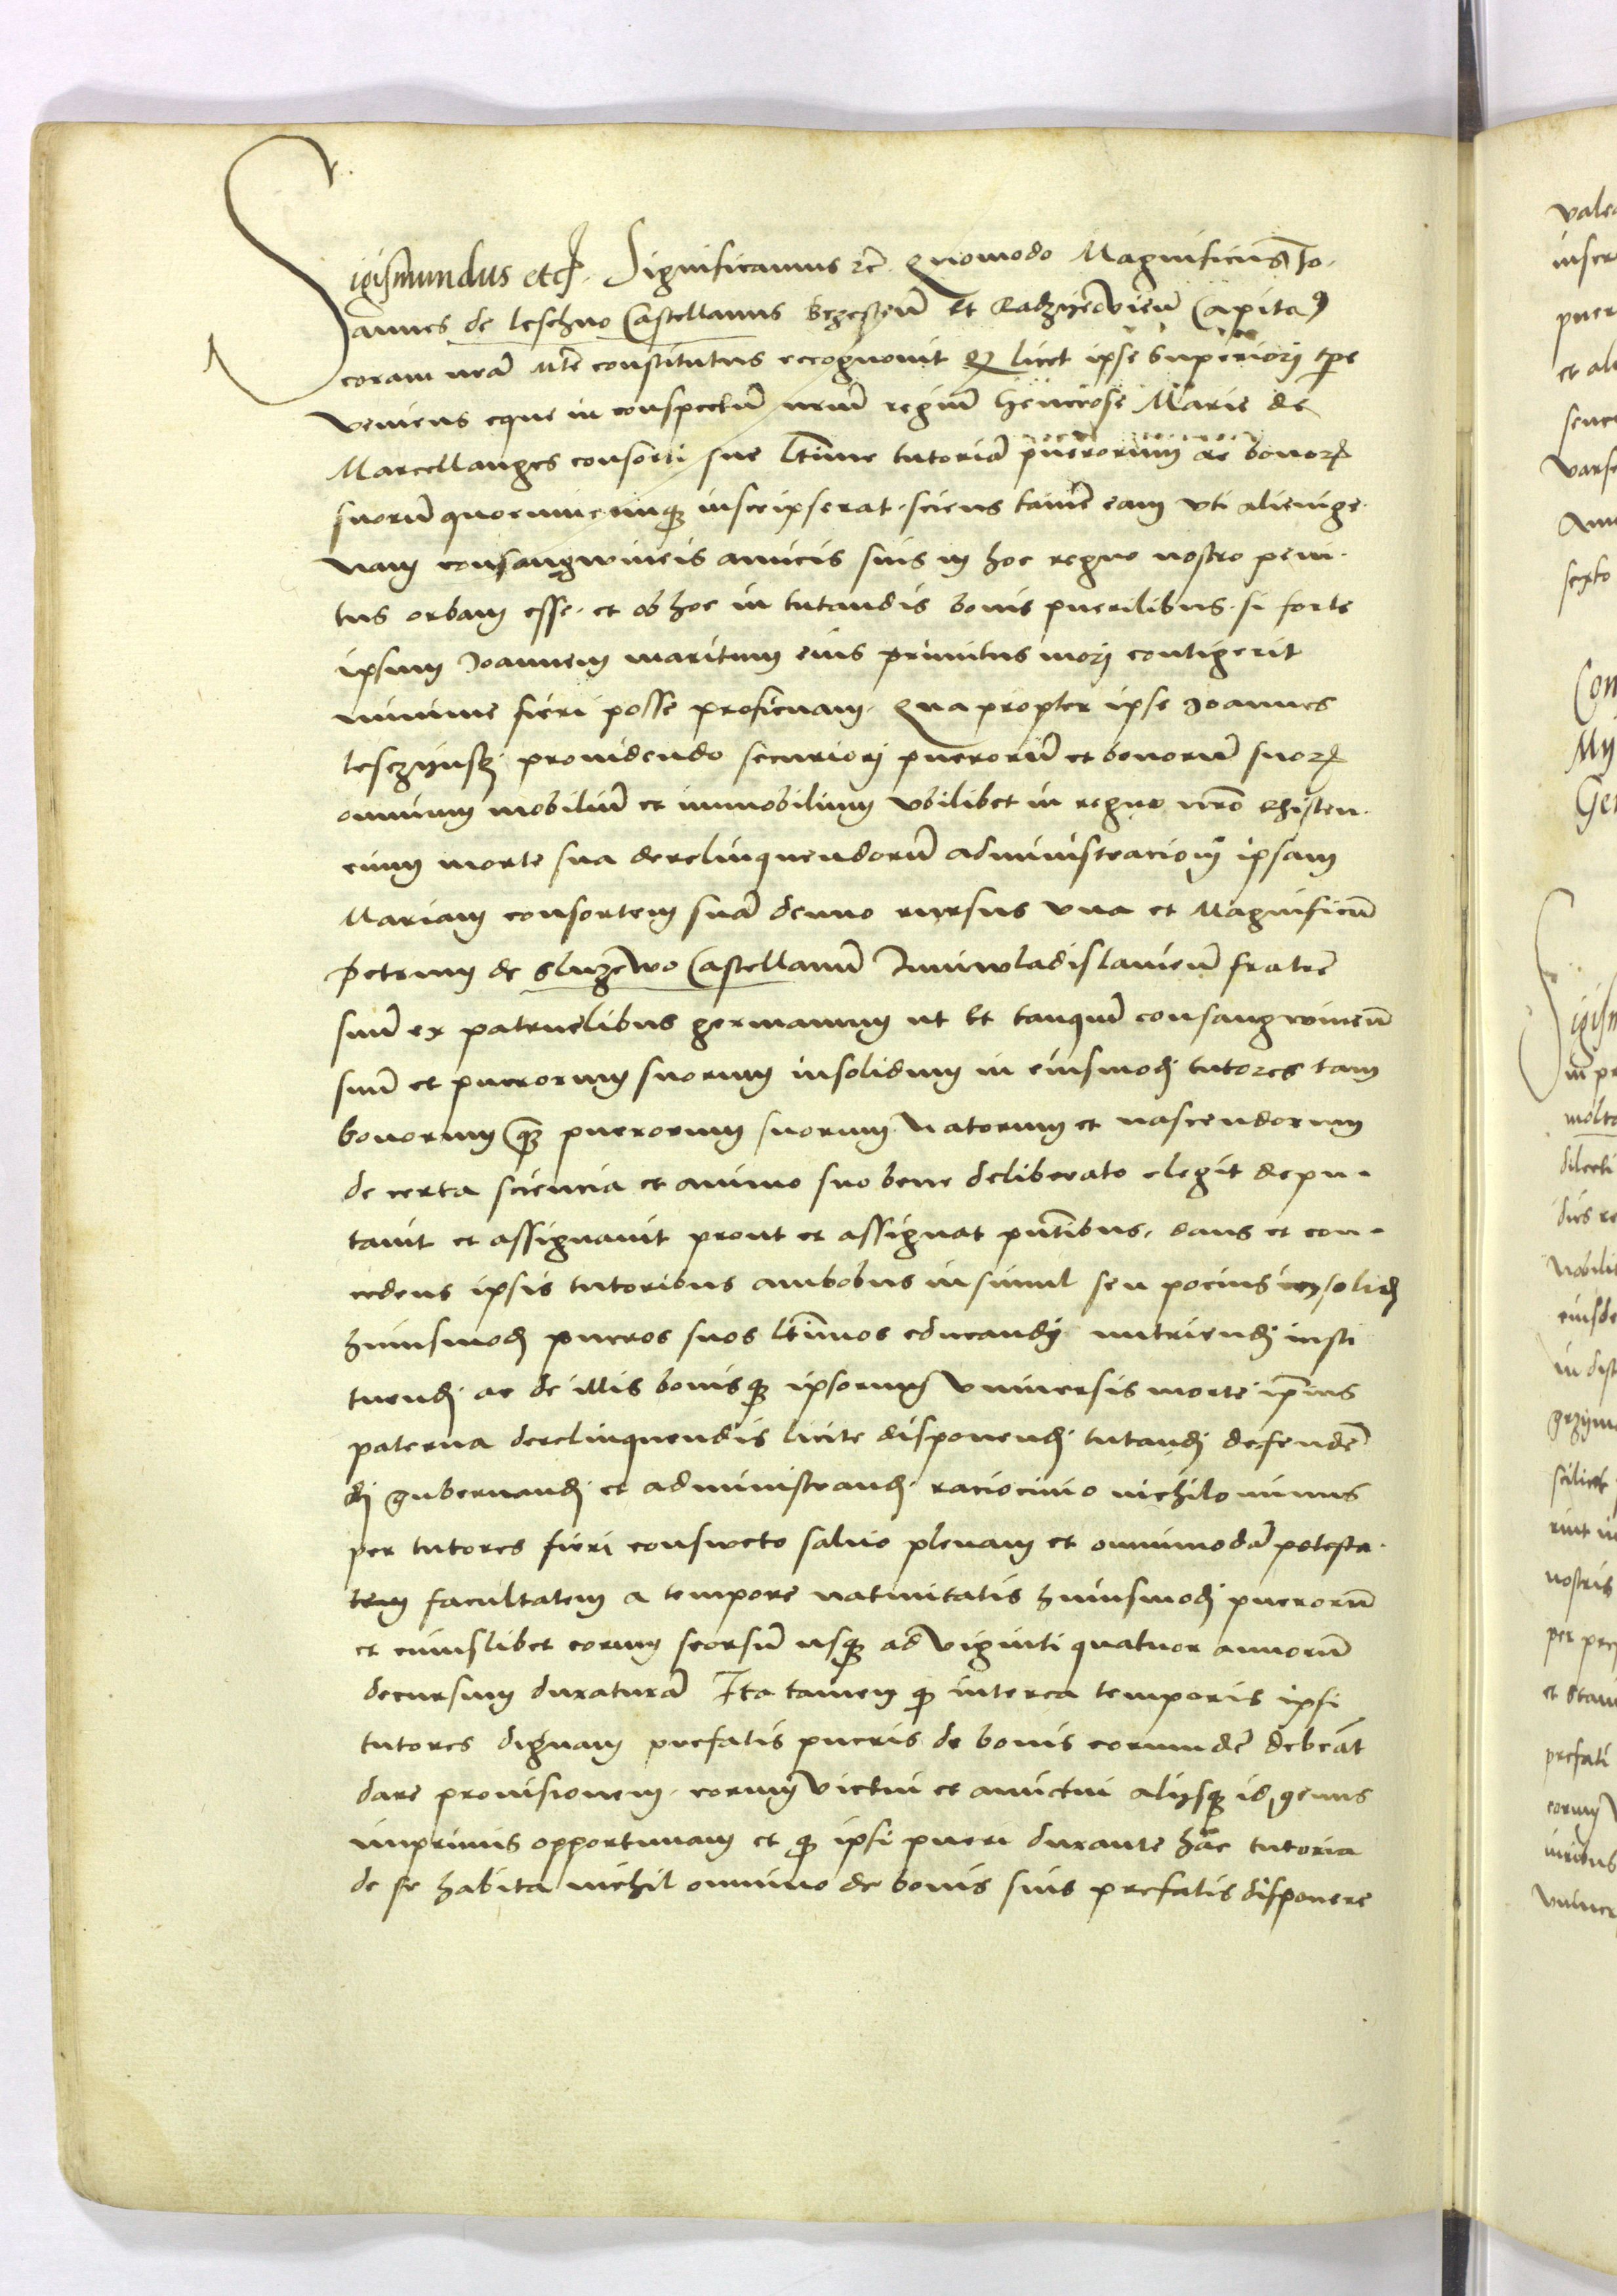 Sigismundus etc. Significamus etc. Quomodo Magnificus Jo-
annes de Leschno Castellanus Brzesteñ et Radzyeovieñ Capitaꝰ
coram nrã Mte constitutus recognovit ꝙ licet ipse superiori tpe
veniens eque in conspectũ nrm̃ regiũ Generose Marie de
Marcellanges consorti sue ltime tutoriã puerorum ac bonoꝝ
suorũ quorumcunqꝫ inscripserat. sciens tamẽ eam vti alienige-
nam consangwineis amicis suis in hoc regno nostro peni-
tus orbam esse. et ob hoc in tutandis bonis puerilibus. si forte
ipsum Joannem maritum eius primitus mori contigerit
minime fieri posse proficuam. Qua propter ipse Joannes
Lesczijnskj providendo securiori puerorũ et bonorũ suoꝝ
omnium mobiliũ et immobilium vbilibet in regno nrõ existen-
cium morte sua derelinquendorũ administracioni ipsam
Mariam consortem suã denuo rursus vna et Magnificũ
Petrum de Sluzewo Castellanũ Juniwladislavieñ fratrẽ
suũ ex patruelibus germanum ut et tanquã consangwineũ
suũ et puerorum suorum insolidum in eiusmodj tutores tam
bonorum qꝫ puerorum suorum natorum et nascendorum
de certa sciencia et animo suo bene deliberato elegit depu-
tavit et assignavit prout et assignat pñtibus. dans et con-
cedens ipsis tutoribus ambobus insimul seu pocius insolidũ
huiusmodj pueros suos ltimos educandj nutriendj insti
tuendj ac de illis bonisqꝫ ipsorum vniversis morte ipĩus
paterna derelinquendis licite disponendj tutandj defendẽ
dj gubernandj et administrandj raciocinio nichilominus
per tutores fieri consweto salvo plenam et omnimodã potesta-
tem facultatem a tempore nativitatis huiusmodj puerorũ
et cuiuslibet eorum seorsũ usqꝫ ad viginti quatuor annorũ
decursum duraturã Ita tamen ꝙ interea temporis ipsi
tutores dignam prefatis pueris de bonis eorumdẽ debeãt
dare provisionem. eorum victui et amictui alijsqꝫ id genus
imprimis opportunam et ꝙ ipsi pueri durante hac tutoria
de se habita nichil omnino de bonis suis prefatis disponere